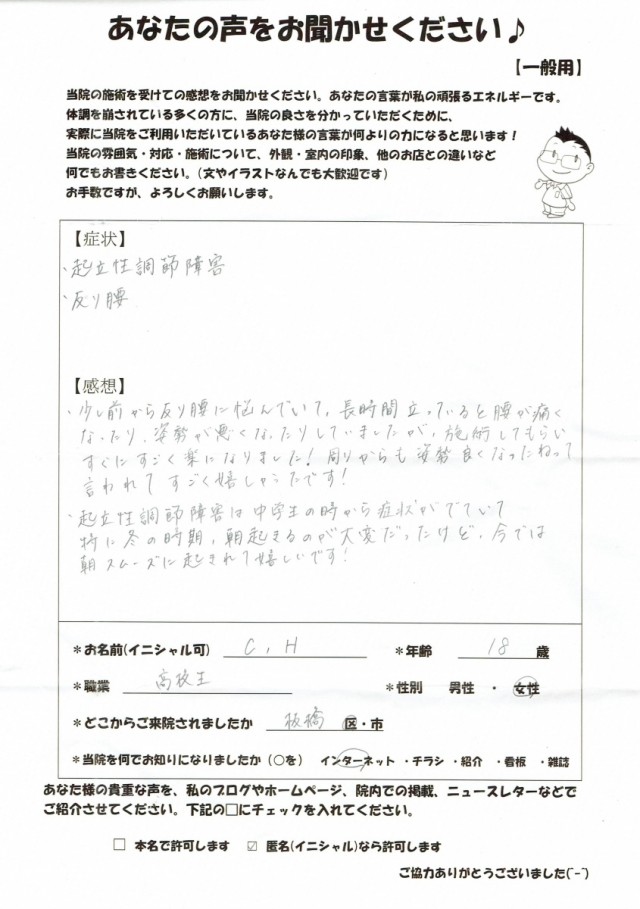 あなたの声をお聞かせください♪
【一般用】
当院の施術を受けての感想をお聞かせください。あなたの言葉が私の頑張るエネルギーです。
体調を崩されている多くの方に、当院の良さを分かっていただくために、
実際に当院をご利用いただいているあなた様の言葉が何よりの力になると思います！
当院の雰囲気・対応・施術について、外観・室内の印象、他のお店との違いなど
何でもお書きください。(文やイラストなんでも大歓迎です)
お手数ですが、よろしくお願いします。
【症状】
・起立性調節障害
・反り腰
【感想】
・少し前から反り腰に悩んでいて、長時間立っていると腰が痛く
なったり、姿勢が悪くなったりしていましたが、施術してもらい
すぐにすごく楽になりました！周りからも姿勢良くなったねって
言われてすごく嬉しかったです！
・起立性調節障害は中学生の時から症状がでていて
特に冬の時期、朝起きるのが大変だったけど、今では
朝スムーズに起きれて嬉しいです！
＊お名前(イニシャル可) C, H ＊年齢 18 歳
＊職業 高校生 ＊性別 男性 ・ 女性
＊どこからご来院されましたか 板橋 区・市
＊当院を何でお知りになりましたか (○を) インターネット ・チラシ ・紹介 ・看板 ・雑誌
あなた様の貴重な声を、私のブログやホームページ、院内での掲載、ニュースレターなどで
ご紹介させてください。下記の□にチェックを入れてください。
□ 本名で許可します ☑ 匿名(イニシャル)なら許可します
ご協力ありがとうございました(^-^)